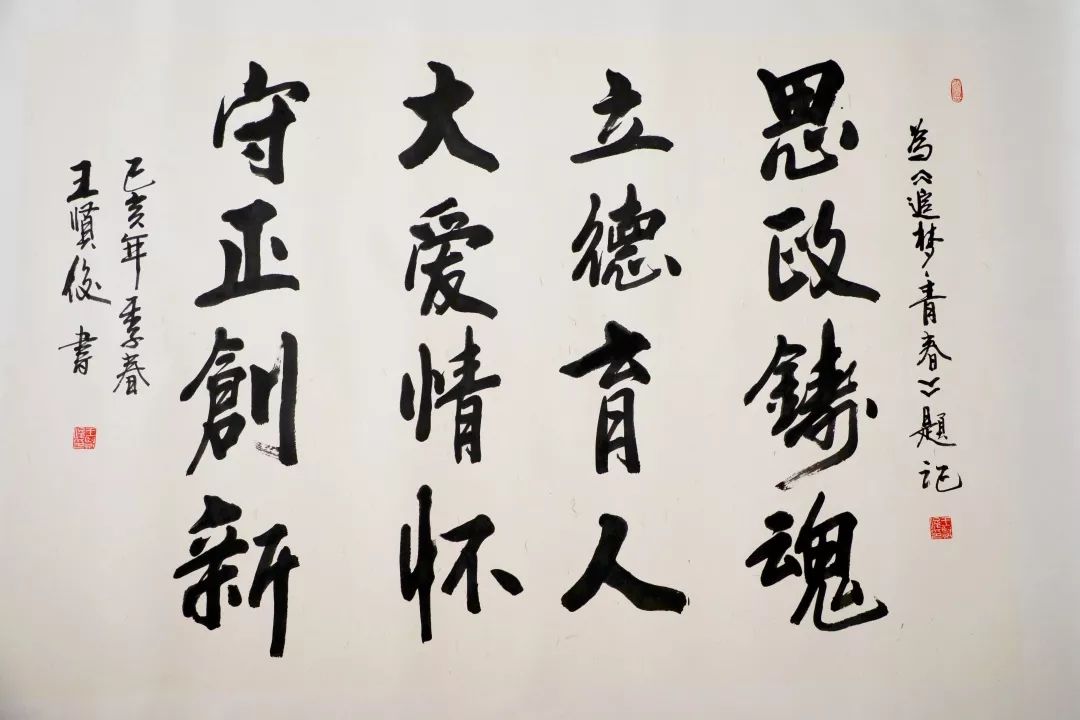 为《追梦·青春》题记
思政鑄魂
立德育人
大爱情怀
守正創新
己亥年季春
王贤俊書